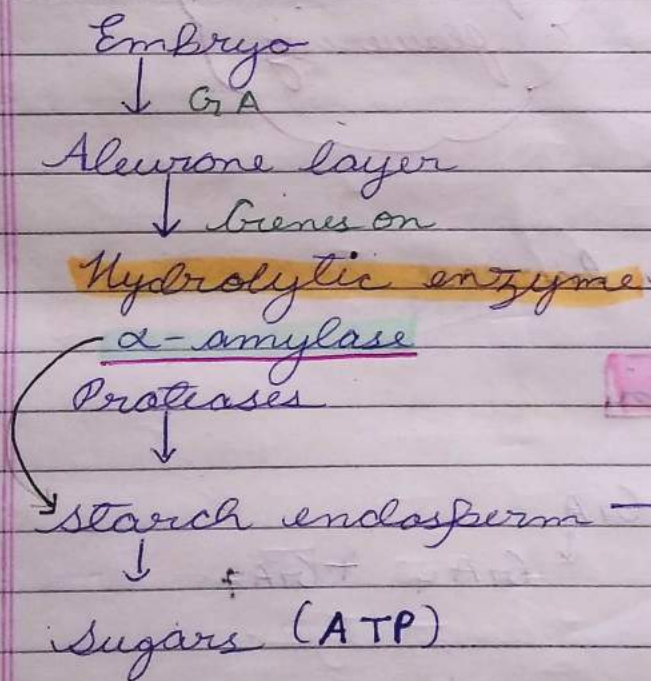 Embryo
↓ GA
Aleurone layer
↓ Genes on
Hydrolytic enzyme
α-amylase
Proteases
↓
starch endosperm —
↓
sugars (ATP)